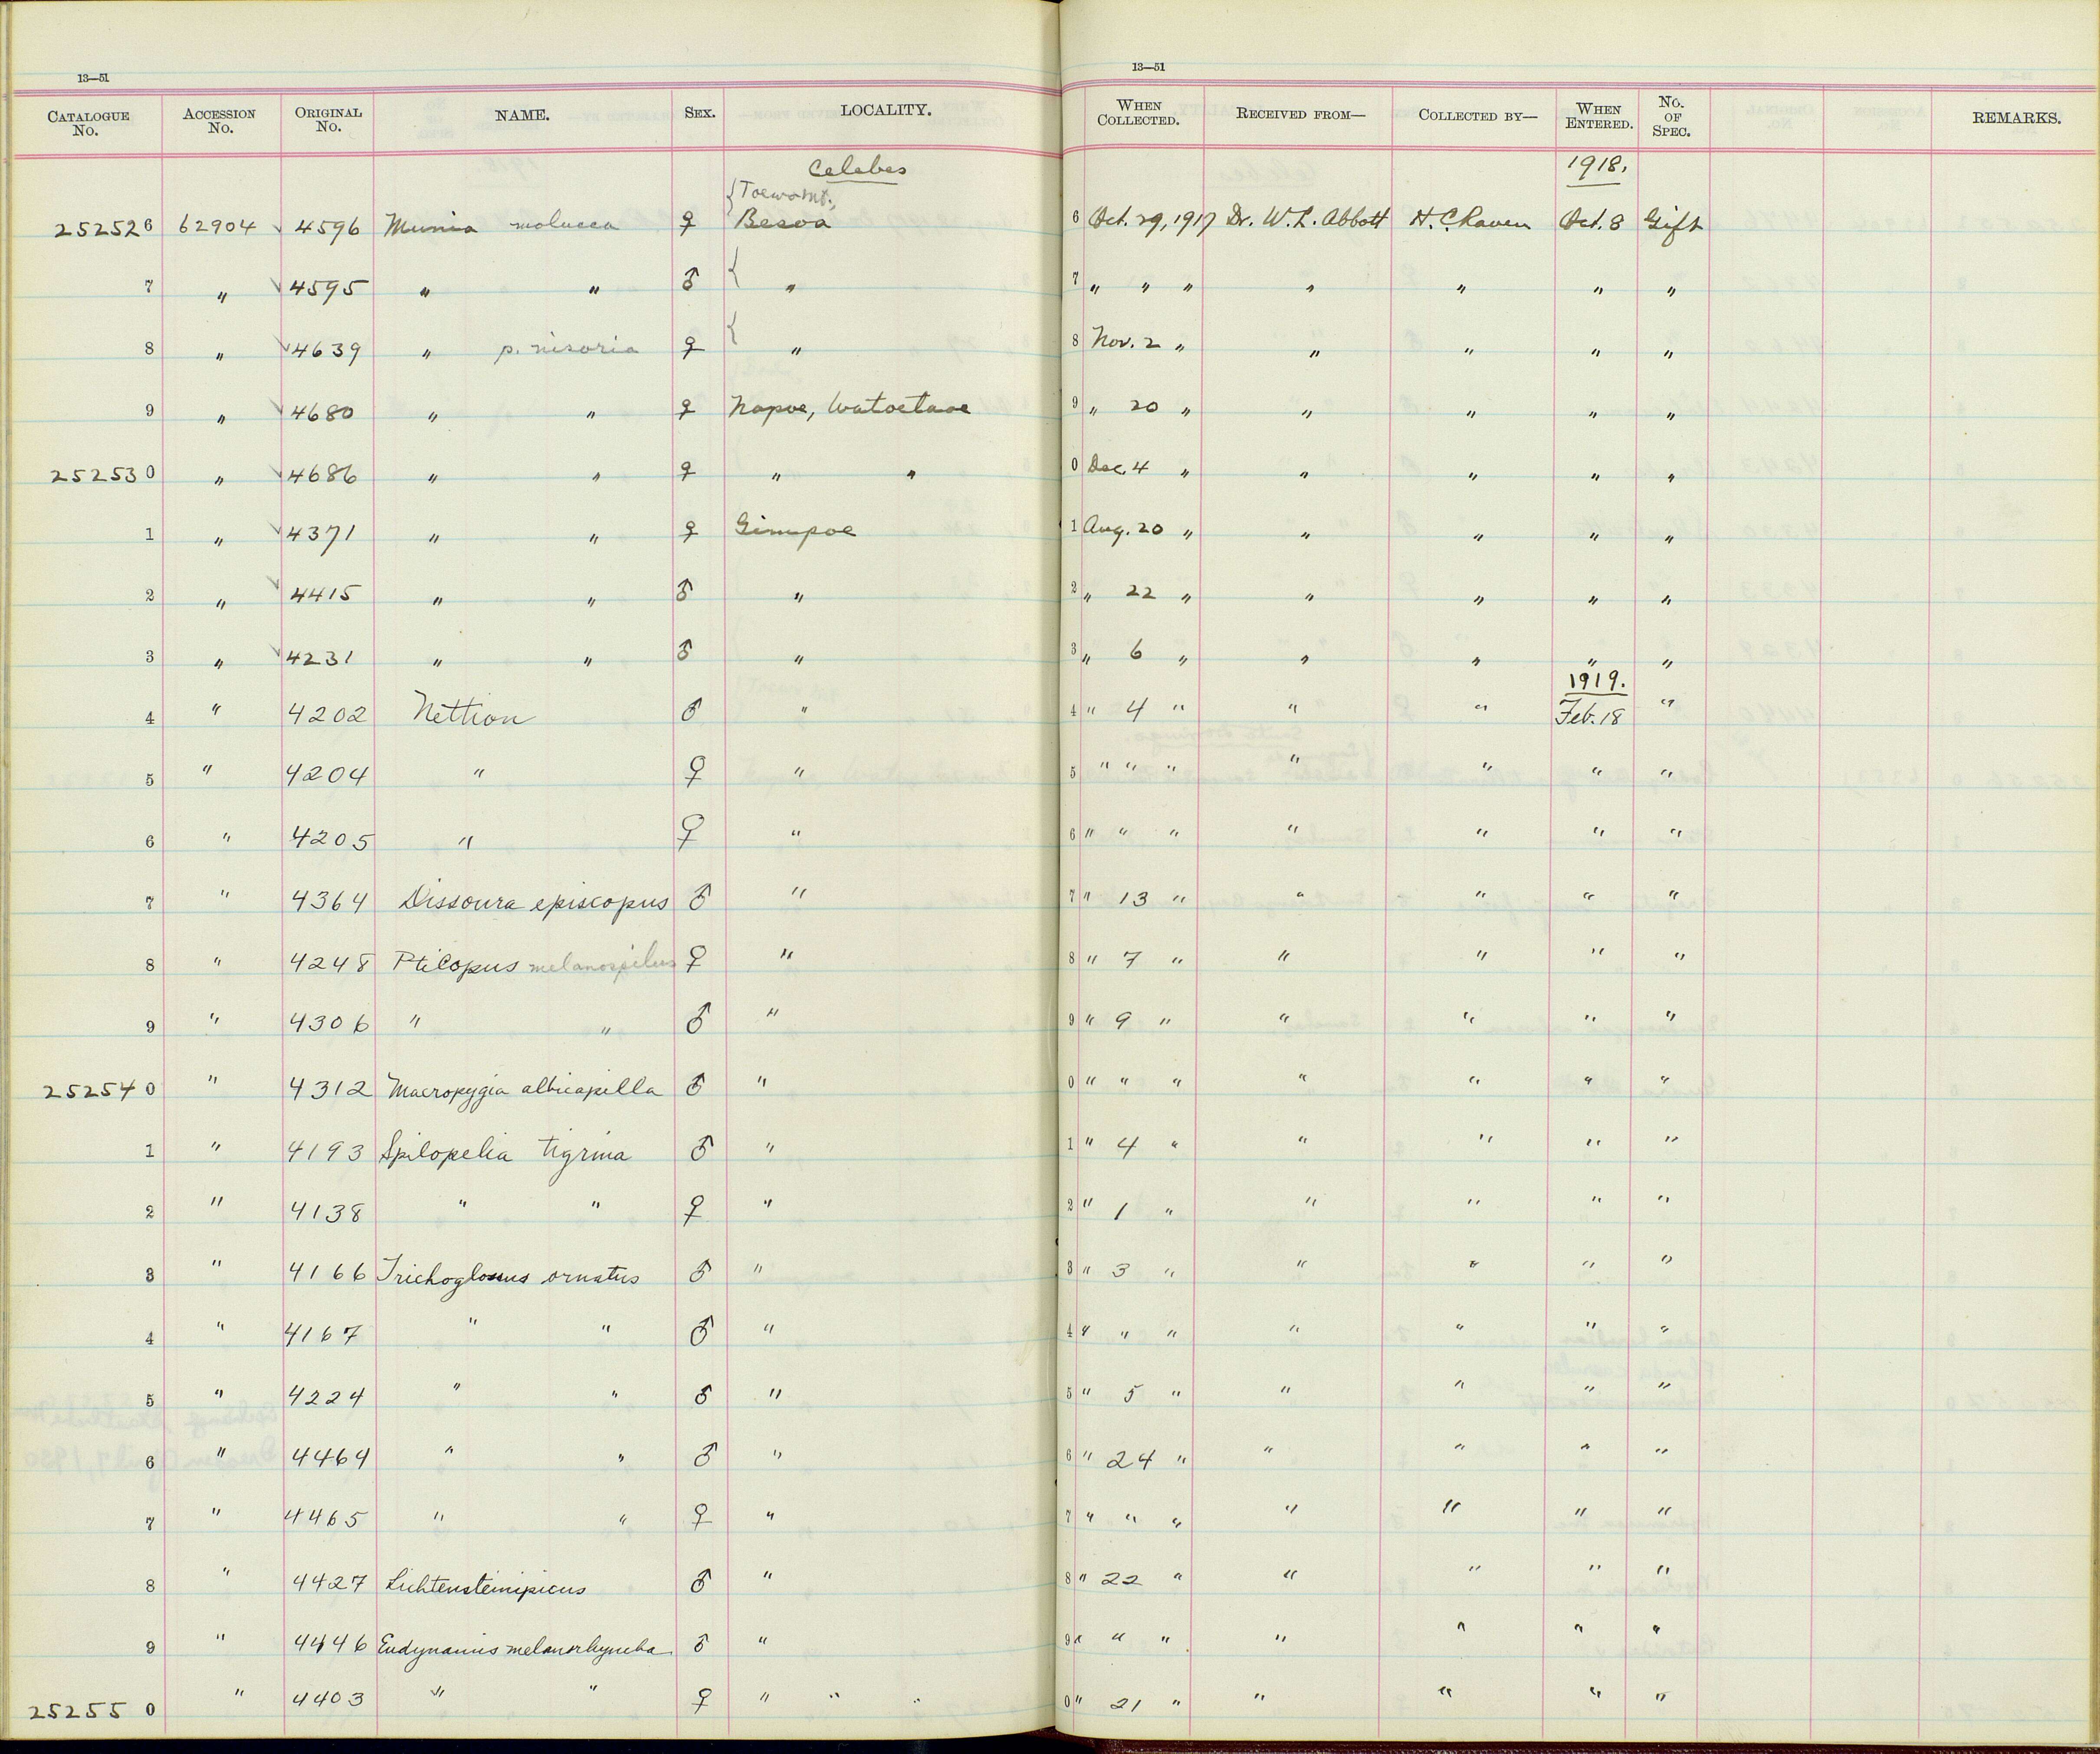 13—51 13—51
CATALOGUE No. ACCESSION No. ORIGINAL No. NAME. SEX. LOCALITY. WHEN COLLECTED. RECEIVED FROM— COLLECTED BY— WHEN ENTERED. No. OF SPEC. REMARKS.
Celebes 1918.
{Toewo Mt.,
252526 62904 ✓ 4596 Munia molucca ♀ Besoa 6 Oct. 29, 1917 Dr. W. L. Abbott H. C. Raven Oct. 8 Gift
7 " ✓ 4595 " " ♂ { " 7 " " " " " " "
8 " ✓ 4639 " p. nisoria ♀ { " 8 Nov. 2 " " " " "
9 " ✓ 4680 " " ♀ Napoe, Watoetaoe 9 " 20 " " " " "
252530 " ✓ 4686 " " ♀ " " 0 Dec. 4 " " " " "
1 " ✓ 4371 " " ♀ Gimpoe 1 Aug. 20 " " " " "
2 " ✓ 4415 " " ♂ " 2 " 22 " " " " "
3 " ✓ 4231 " " ♂ " 3 " 6 " " " " "
1919.
4 " 4202 Nettion ♂ " 4 " 4 " " " Feb. 18 "
5 " 4204 " ♀ " 5 " " " " " " "
6 " 4205 " ♀ " 6 " " " " " " "
7 " 4364 Dissoura episcopus ♂ " 7 " 13 " " " " "
8 " 4248 Ptilopus melanospilus ♀ " 8 " 7 " " " " "
9 " 4306 " " ♂ " 9 " 9 " " " " "
252540 " 4312 Macropygia albicapilla ♂ " 0 " " " " " " "
1 " 4193 Spilopelia tigrina ♂ " 1 " 4 " " " " "
2 " 4138 " " ♀ " 2 " 1 " " " " "
3 " 4166 Trichoglossus ornatus ♂ " 3 " 3 " " " " "
4 " 4167 " " ♂ " 4 " " " " " " "
5 " 4224 " " ♂ " 5 " 5 " " " " "
6 " 4464 " " ♂ " 6 " 24 " " " " "
7 " 4465 " " ♀ " 7 " " " " " " "
8 " 4427 Lichtensteinipicus ♂ " 8 " 22 " " " " "
9 " 4446 Eudynamis melanorhyncha ♂ " 9 " " " " " " "
252550 " 4403 " " ♀ " " " 0 " 21 " " " " "